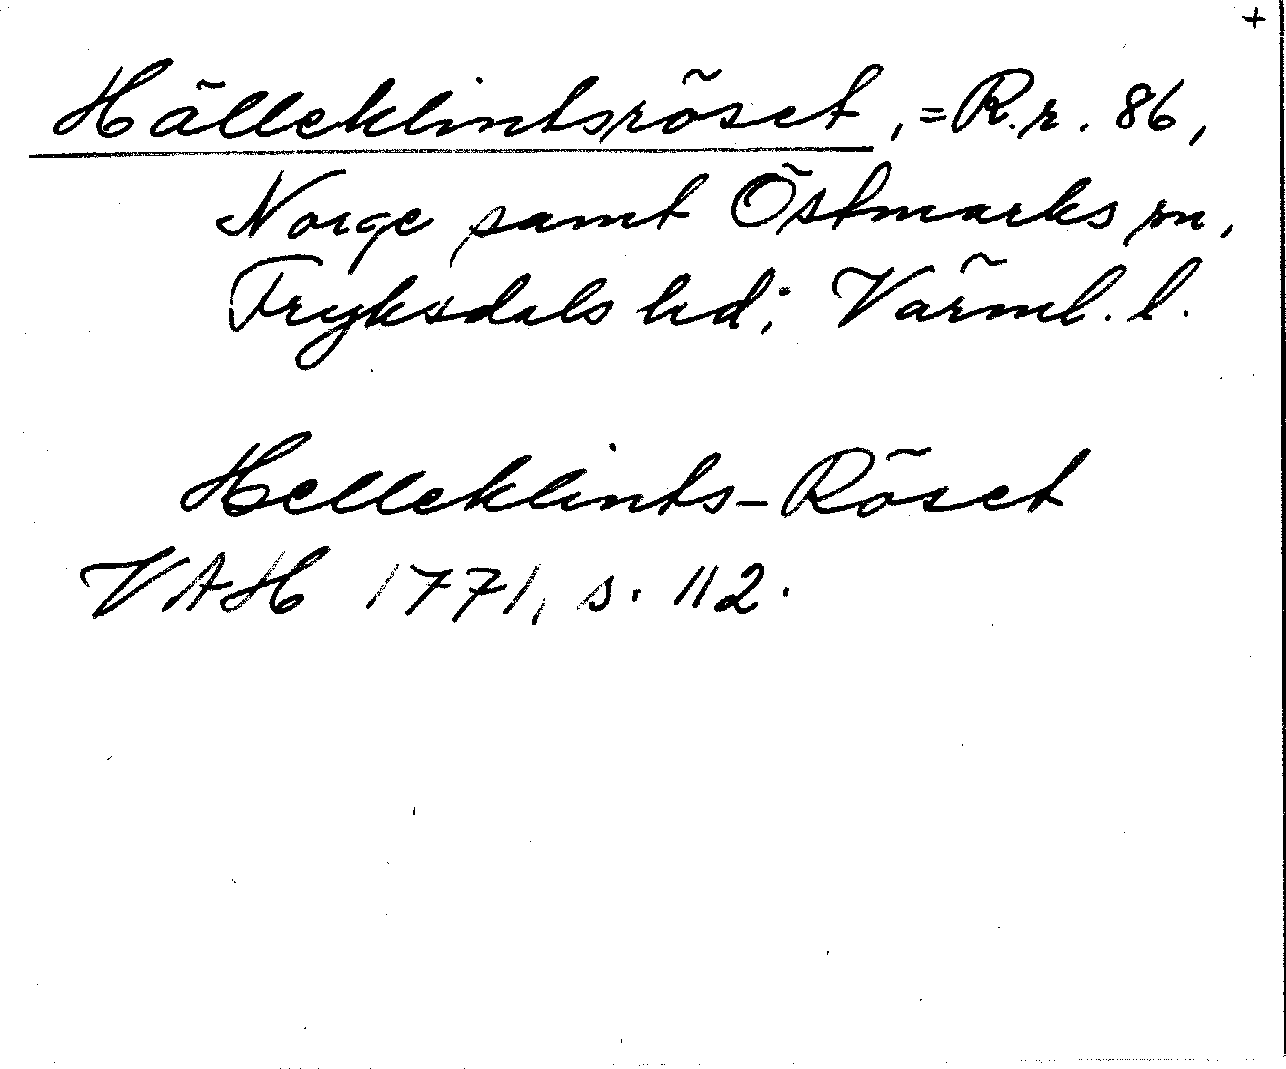 +
Hälleklintsröset, =R.r. 86,
Norge samt Östmarks sn,
Fryksdals hd; Värml. l.
Helleklints-Röset
VAH 1771, s. 112.